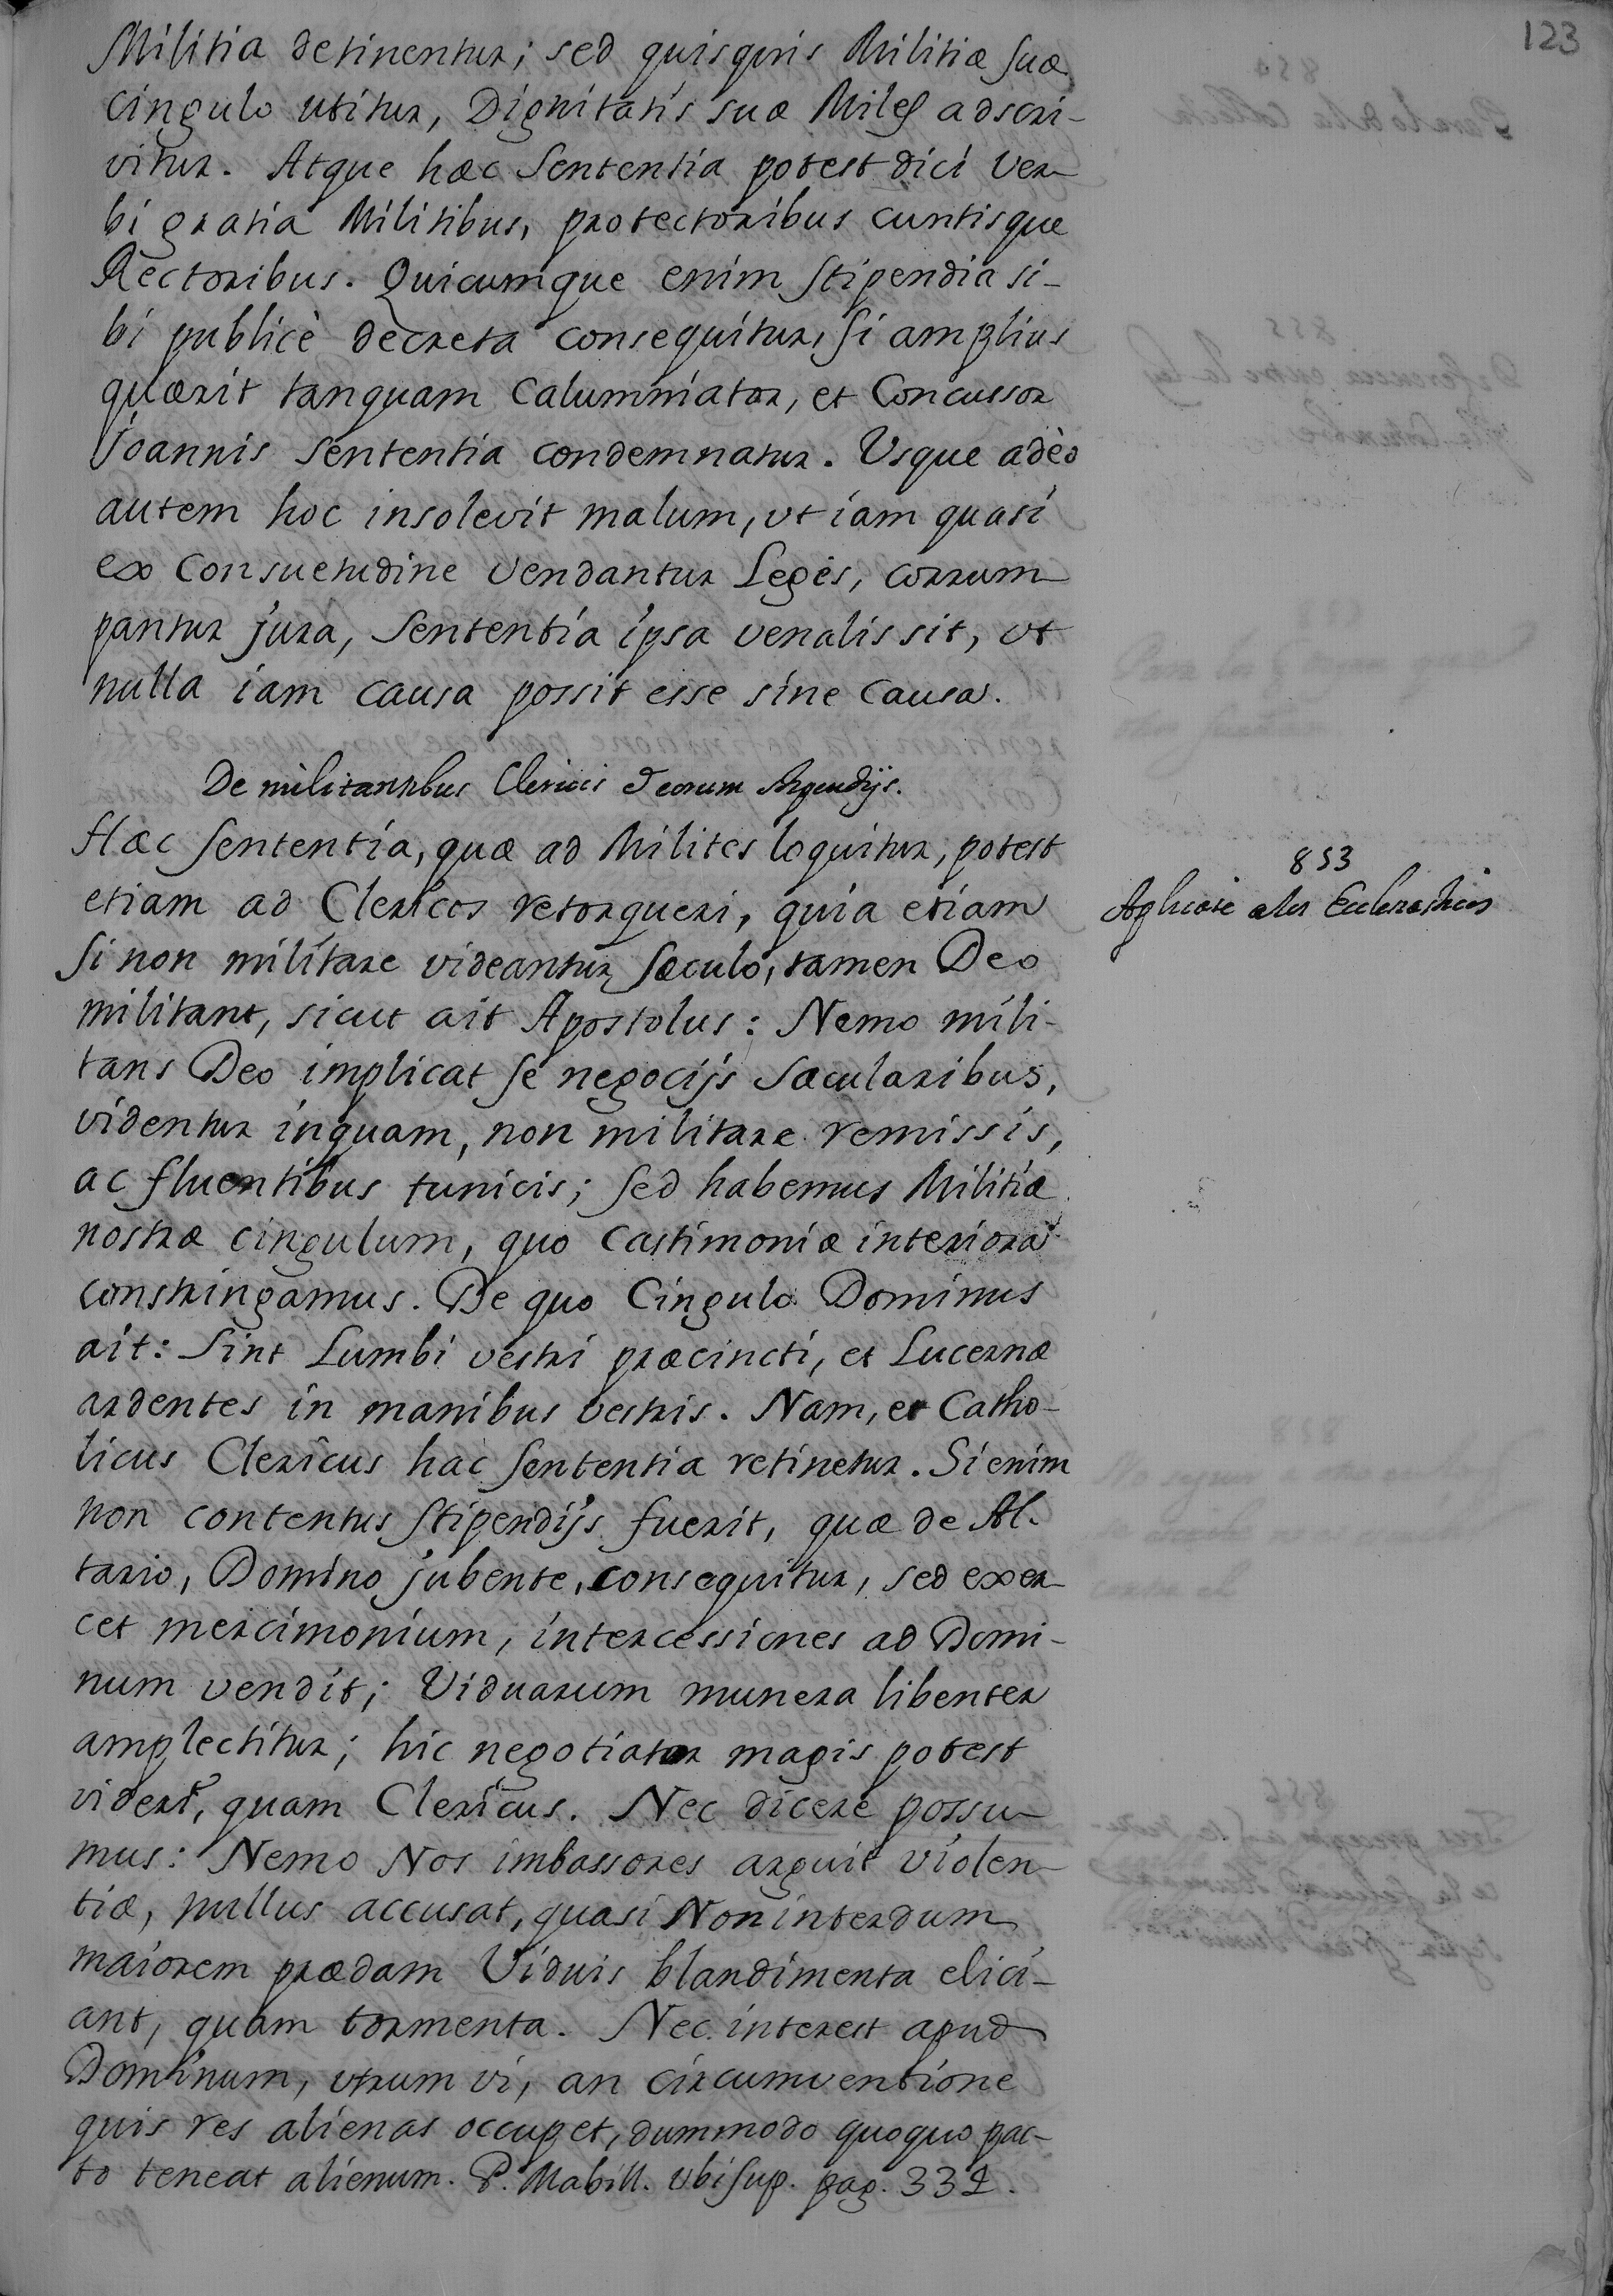 123
Militia detinentur; sed quisquis Militiæ suæ
cingulo utitur, Dignitatis suæ Miles adscri-
vitur. Atque hæc Sententia potest dici Ver-
bi gratia Militibus, protectoribus cuntisque
Rectoribus. Quicumque enim Stipendia si-
bi publicè decreta consequitur, si amplius
quærit tanquam Calumniator, et Concussor
Joannis Sententia condemnatur. Usque adèo
autem hoc insolevit malum, ut iam quasi
ex Consuetudine Vendantur Leges, corrum-
pantur jura, Sententia ipsa venalis sit, ut
nulla iam causa possit esse sine Causa.
De militantibus Clericis & eorum Stipendijs.
Hæc Sententia, quæ ad Milites loquitur, potest
etiam ad Clericos retorqueri, quia etiam
Si non militare videantur Sæculo, tamen Deo
militant, sicut ait Apostolus: Nemo mili-
tans Deo implicat se negocijs Sæcularibus,
videntur inquam, non militare remissis,
ac fluentibus tunicis; sed habemus Militiæ
nostræ cingulum, quo Castimoniæ interiora
constringamus. De quo Cingulo Dominus
ait: Sint Lumbi vestri præcincti, et Lucernæ
ardentes in manibus vestris. Nam, et Catho-
licus Clericus hac Sententia retinetur. Si enim
non contentus Stipendijs fuerit, quæ de Al-
tario, Domino jubente, consequitur, sed exer-
cet mercimonium, intercessiones ad Domi-
num vendit; Viduarum munera libenter
amplectitur; hic negotiator magis potest
videri, quam Clericus. Nec dicere possu-
mus: Nemo Nos imbassores arguit violen-
tiæ, nullus accusat, quasi Non interdum
maiorem prædam Viduis blandimenta elici-
ant, quam tormenta. Nec interest apud
Dominum, utrum vi, an circumventione
quis res alienas occupet, dummodo quoquo pac-
to teneat alienum. P. Mabill. ubi sup. pag. 332.
853
Aplicase alos Eclesiasticos